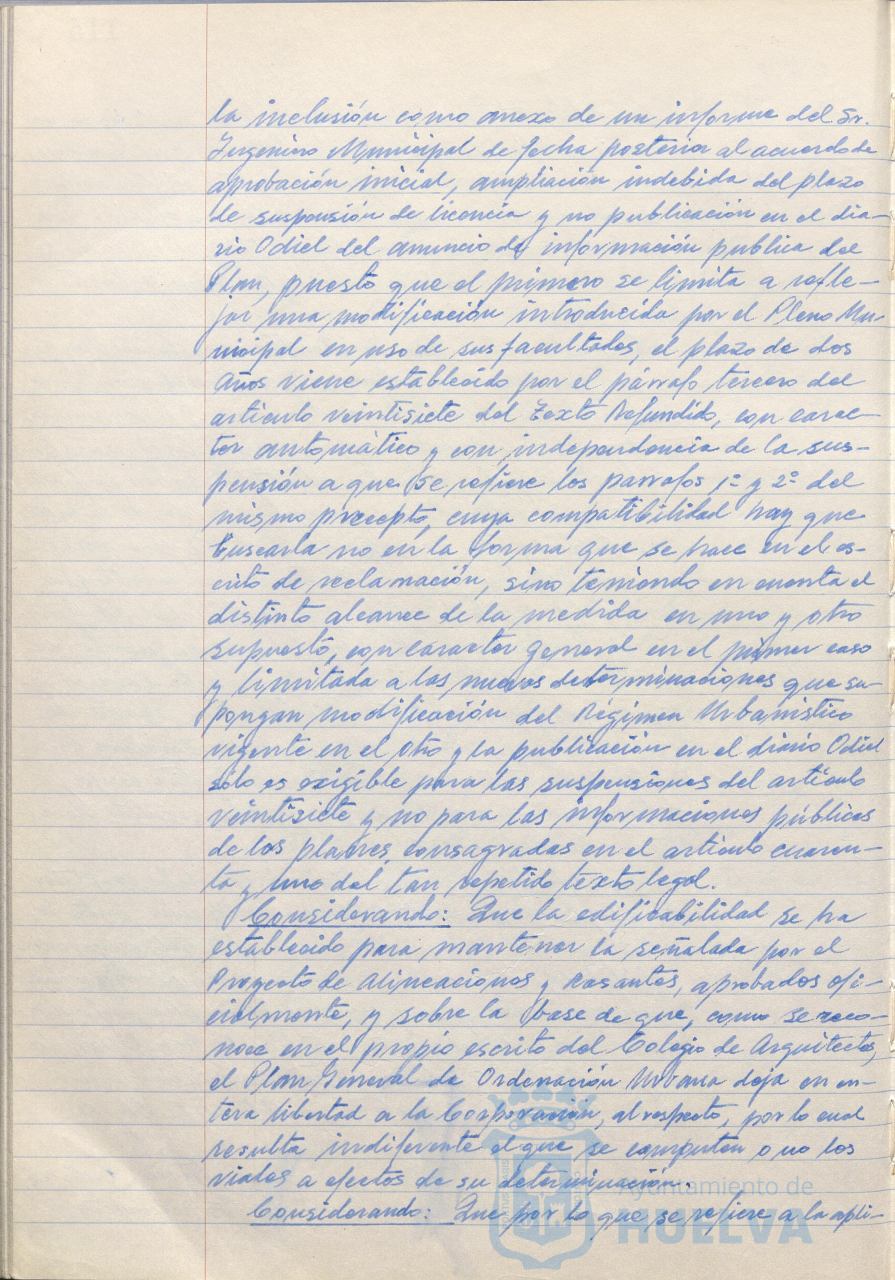 la inclusión como anexo de un informe del Sr.
Ingeniero Municipal de fecha posterior al acuerdo de
aprobación inicial, ampliación indebida del plazo
de suspensión de licencia y no publicación en el dia-
rio Odiel del anuncio de información publica del
Plan, puesto que el primero se limita a refle-
jar una modificación introducida por el Pleno Mu-
nicipal en uso de sus facultades, el plazo de dos
años viene establecido por el párrafo tercero del
artículo veintisiete del Texto Refundido, con carac-
ter automático y con independencia de la sus-
pensión a que se refiere los parrafos 1º y 2º del
mismo precepto, cuya compatibilidad hay que
buscarla no en la forma que se hace en el es-
crito de reclamación, sino teniendo en cuenta el
distinto alcance de la medida en uno y otro
supuesto, con caracter general en el primer caso
y limitada a las nuevas determinaciones que su-
pongan modificación del Régimen Urbanístico
vigente en el otro y la publicación en el diario Odiel
sólo es exigible para las suspensiones del artículo
veintisiete y no para las informaciones públicas
de los planes, consagradas en el artículo cuaren-
ta y uno del tan repetido texto legal.
Considerando: Que la edificabilidad se ha
establecido para mantener la señalada por el
Proyecto de Alineaciones y Rasantes, aprobados ofi-
cialmente, y sobre la base de que, como se reco-
noce en el propio escrito del Colegio de Arquitectos,
el Plan General de Ordenación Urbana deja en en-
tera libertad a la Corporación, al respecto, por lo cual
resulta indiferente el que se computen o no los
viales a efectos de su determinación.
Considerando: Que por lo que se refiere a la apli-
Ayuntamiento de
HUELVA